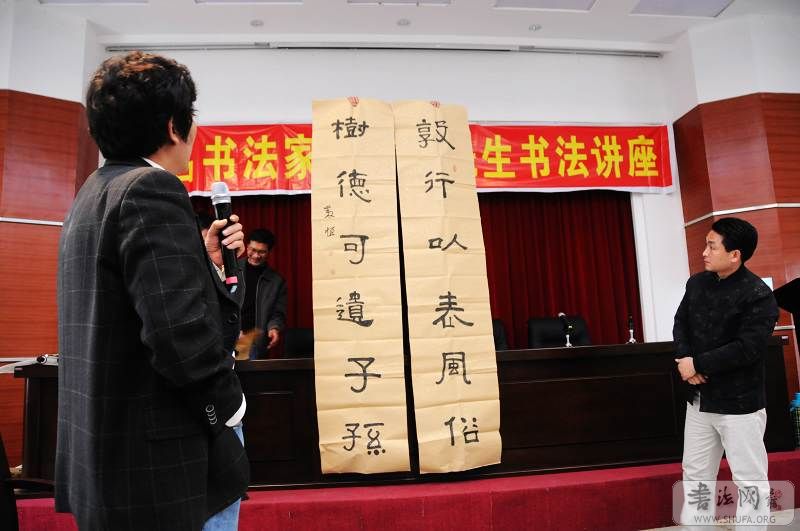 书法家
生书法讲座
敦行以表風俗
樹德可遺子孫
书法网
WWW.SHUFA.ORG